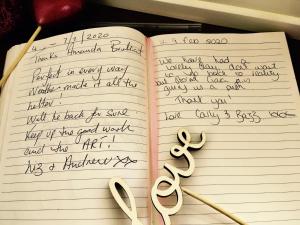 4 - 7/9/2020
Thanks Amanda
Perfect in every way
Weather made it all the
better!
Will be back for sure
Keep up the good work
and the ART!
& Andrew xx
9 Feb 2020
We have had a
lovely stay, don't want
to go back to reality
but
give us a push
Thank you!
Love Cally &
love